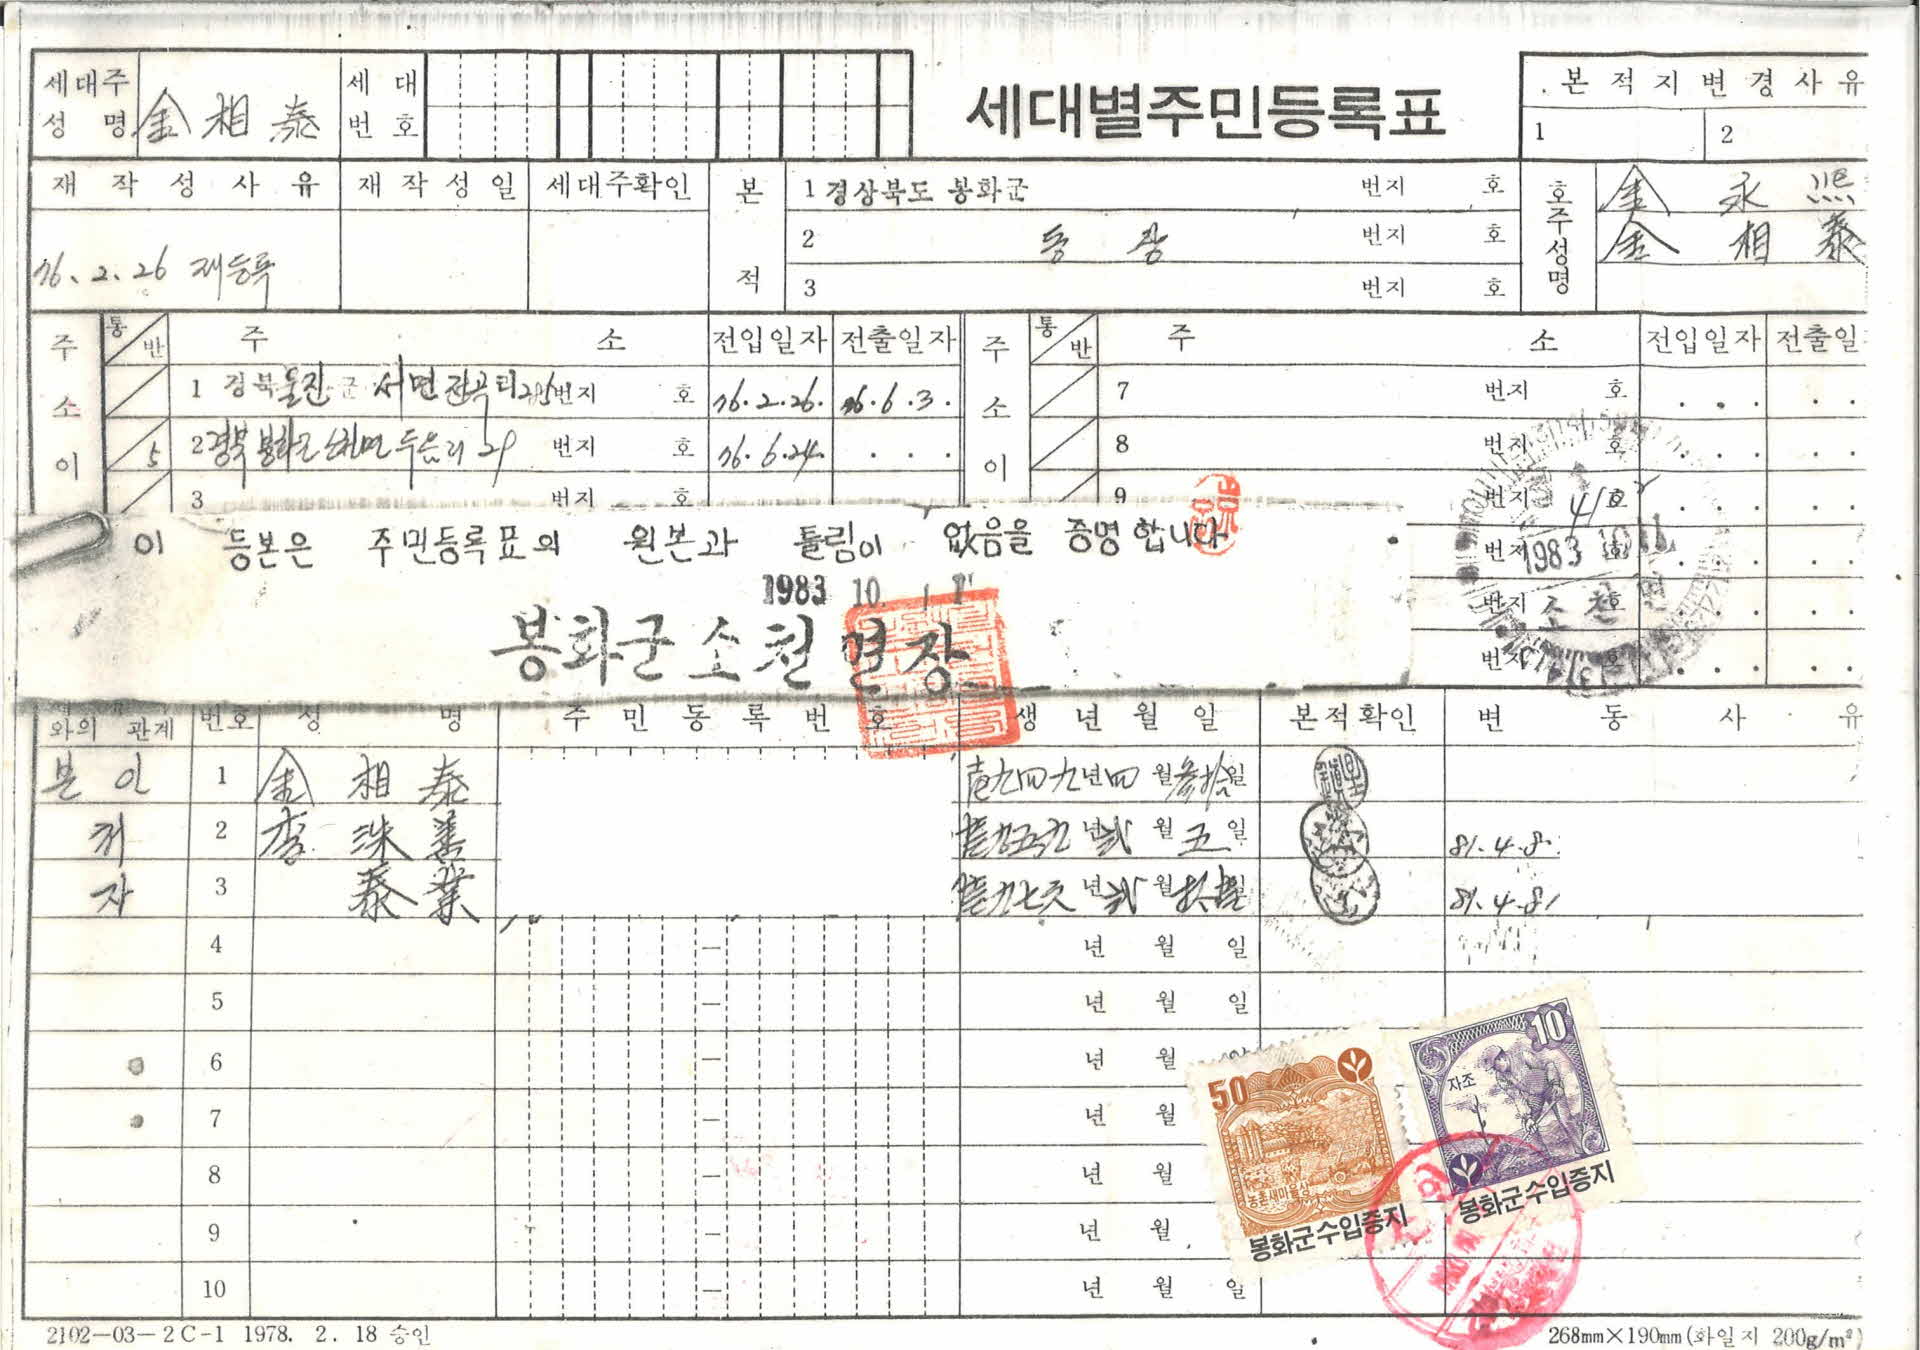 세대주 성명 金相泰 세대번호
세대별주민등록표
본적지변경사유
1 2
재작성사유 재작성일 세대주확인
76. 2. 26 재등록
본적
1 경상북도 봉화군 번지 호
2 번지 호
3 번지 호
호주성명
金永熙
金相泰
주소이
통 반 주소 전입일자 전출일자
1 경북울진군 서면 번지 호 76. 2. 26. 76. 6. 3.
5 2 경북 봉화군 소천면 두음리 29 번지 호 76. 6. 24. . . .
3 번지 호
주소이
통 반 주소 전입일자 전출일
7 번지 호 . . . .
8 번지 호 . . . .
9 번지 호 . . . .
번지 호 . . . .
번지 호 . . . .
번지 호 . . . .
1983 10. 11
소천면
이 등본은 주민등록표의 원본과 틀림이 없음을 증명합니다
1983 10. 1
봉화군 소천면장
와의 관계 번호 성명 주민등록번호 생년월일 본적확인 변동사유
본인 1 金相泰 壹九四九년四월参拾일
처 2 李洙善 년 弐 월 五 일 81. 4. 8.
자 3 泰業 년 弐 월 일 81. 4. 8
4 — 년 월 일
5 — 년 월 일
6 — 년 월 일
7 — 년 월
8 — 년 월
9 — 년 월
10 — 년 월 일
50
농촌새마을상
봉화군수입증지
10
자조
봉화군수입증지
2102-03-2C-1 1978. 2. 18 승인
268mm×190mm(화일지 200g/m²)